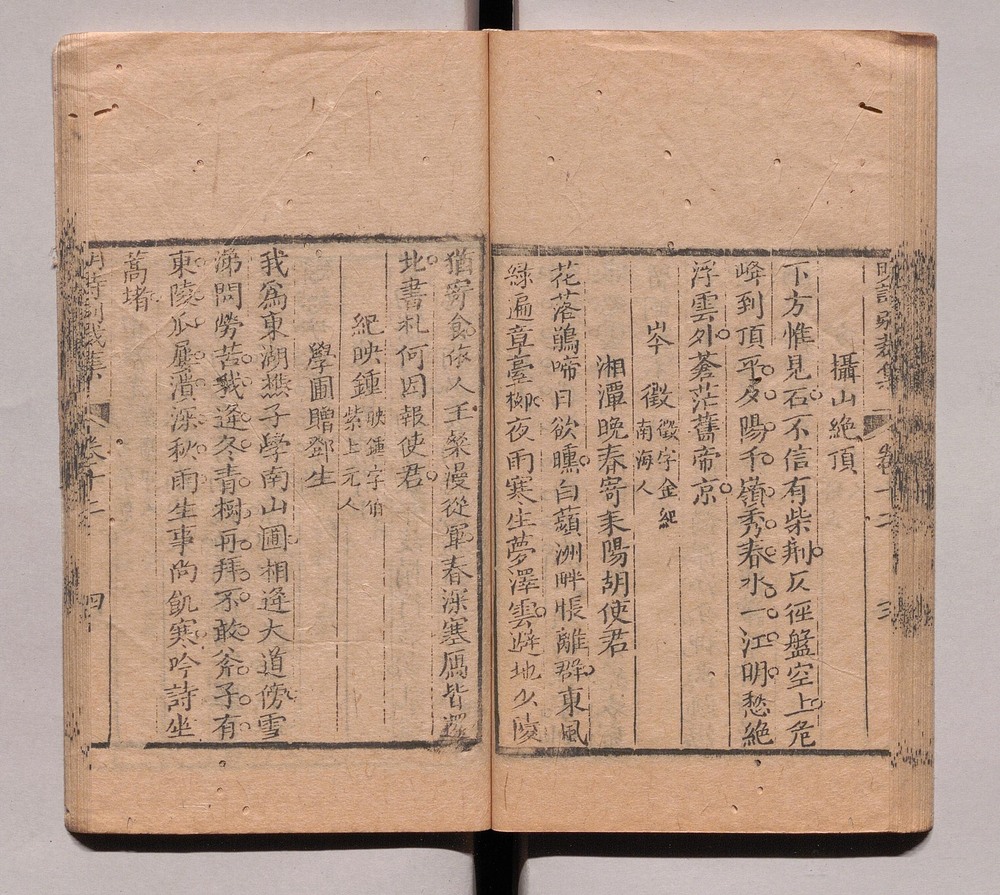 明詩別裁集 卷十二 三
攝山絶頂
下方惟見石不信有柴荆仄徑盤空上危
峰到頂平夕陽千嶺秀春水一江明愁絶
浮雲外蒼茫舊帝京
岑徵 徵字金紀南海人
湘潭晚春寄耒陽胡使君
花落鵑啼日欲曛白蘋洲畔悵離群東風
綠遍章臺柳夜雨寒生夢澤雲避地少陵
猶寄食依人王粲漫從軍春深塞鴈皆還
北書札何因報使君
紀映鍾 映鍾字伯紫上元人
學圃贈鄧生
我爲東湖燕子學南山圃相逢大道傍雪
涕問勞苦我逢冬青樹再拜不敢斧子有
東陵瓜屢潰深秋雨生事尚飢寒吟詩坐
蒿堵
明詩別裁集 卷十二 四